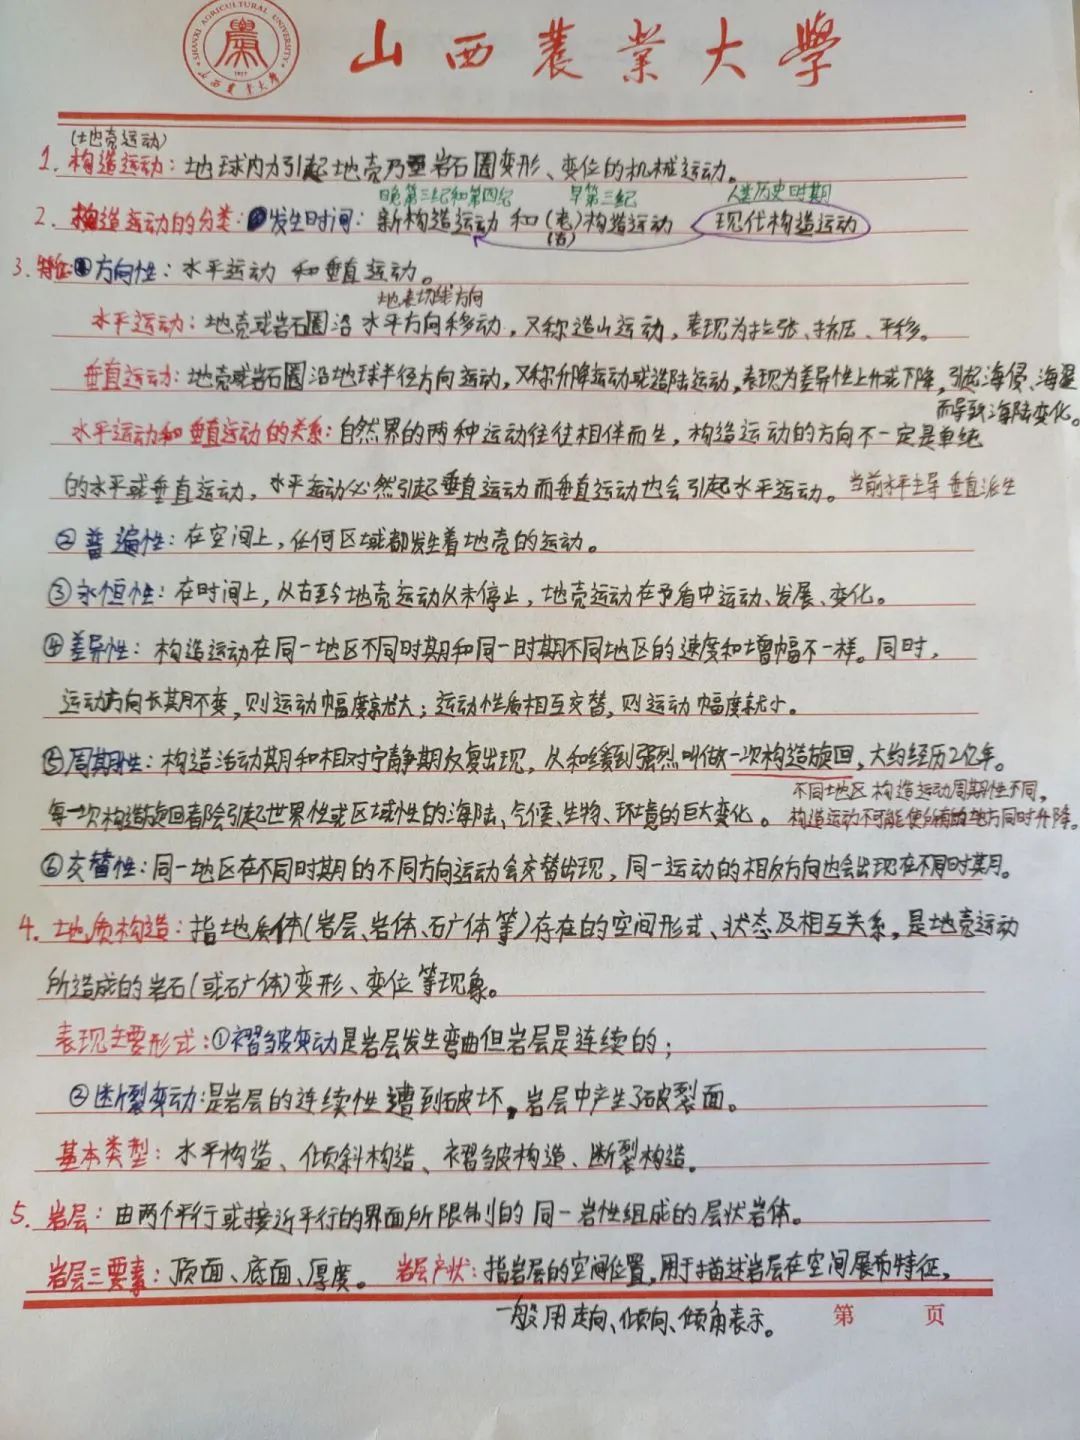 SHANXI AGRICULTURAL UNIVERSITY
1907
山西农业大学
山西農業大学
(地壳运动)
1. 构造运动：地球内力引起地壳乃至岩石圈变形、变位的机械运动。
晚第三纪和第四纪 早第三纪 人类历史时期
2. 构造运动的分类：发生时间：新构造运动 和(老)构造运动 现代构造运动
(古)
3. 特征：①方向性：水平运动 和垂直运动。
地表切线方向
水平运动：地壳或岩石圈沿水平方向移动，又称造山运动，表现为拉张、挤压、平移。
垂直运动：地壳或岩石圈沿地球半径方向运动，又称升降运动或造陆运动，表现为差异性上升或下降，引起海侵、海退
而导致海陆变化。
水平运动和垂直运动的关系：自然界的两种运动往往相伴而生，构造运动的方向不一定是单纯
的水平或垂直运动，水平运动必然引起垂直运动而垂直运动也会引起水平运动。当前水平主导 垂直派生
②普遍性：在空间上，任何区域都发生着地壳的运动。
③永恒性：在时间上，从古至今地壳运动从未停止，地壳运动在矛盾中运动、发展、变化。
④差异性：构造运动在同一地区不同时期和同一时期不同地区的速度和增幅不一样。同时，
运动方向长期不变，则运动幅度就大；运动性质相互交替，则运动幅度就小。
⑤周期性：构造活动期和相对宁静期反复出现，从和缓到强烈叫做一次构造旋回，大约经历2亿年。
不同地区构造运动周期性不同，
每一次构造旋回都会引起世界性或区域性的海陆、气候、生物、环境的巨大变化。构造运动不可能使所有的地方同时升降。
⑥交替性：同一地区在不同时期的不同方向运动会交替出现，同一运动的相反方向也会出现在不同时期。
4. 地质构造：指地质体(岩层、岩体、矿体等)存在的空间形式、状态及相互关系，是地壳运动
所造成的岩石(或矿体)变形、变位等现象。
表现主要形式：①褶皱变动是岩层发生弯曲但岩层是连续的；
②断裂变动：是岩层的连续性遭到破坏，岩层中产生了破裂面。
基本类型：水平构造、倾斜构造、褶皱构造、断裂构造。
5. 岩层：由两个平行或接近平行的界面所限制的同一岩性组成的层状岩体。
岩层三要素：顶面、底面、厚度。 岩层产状：指岩层的空间位置，用于描述岩层在空间展布特征，
一般用走向、倾向、倾角表示。
第 页